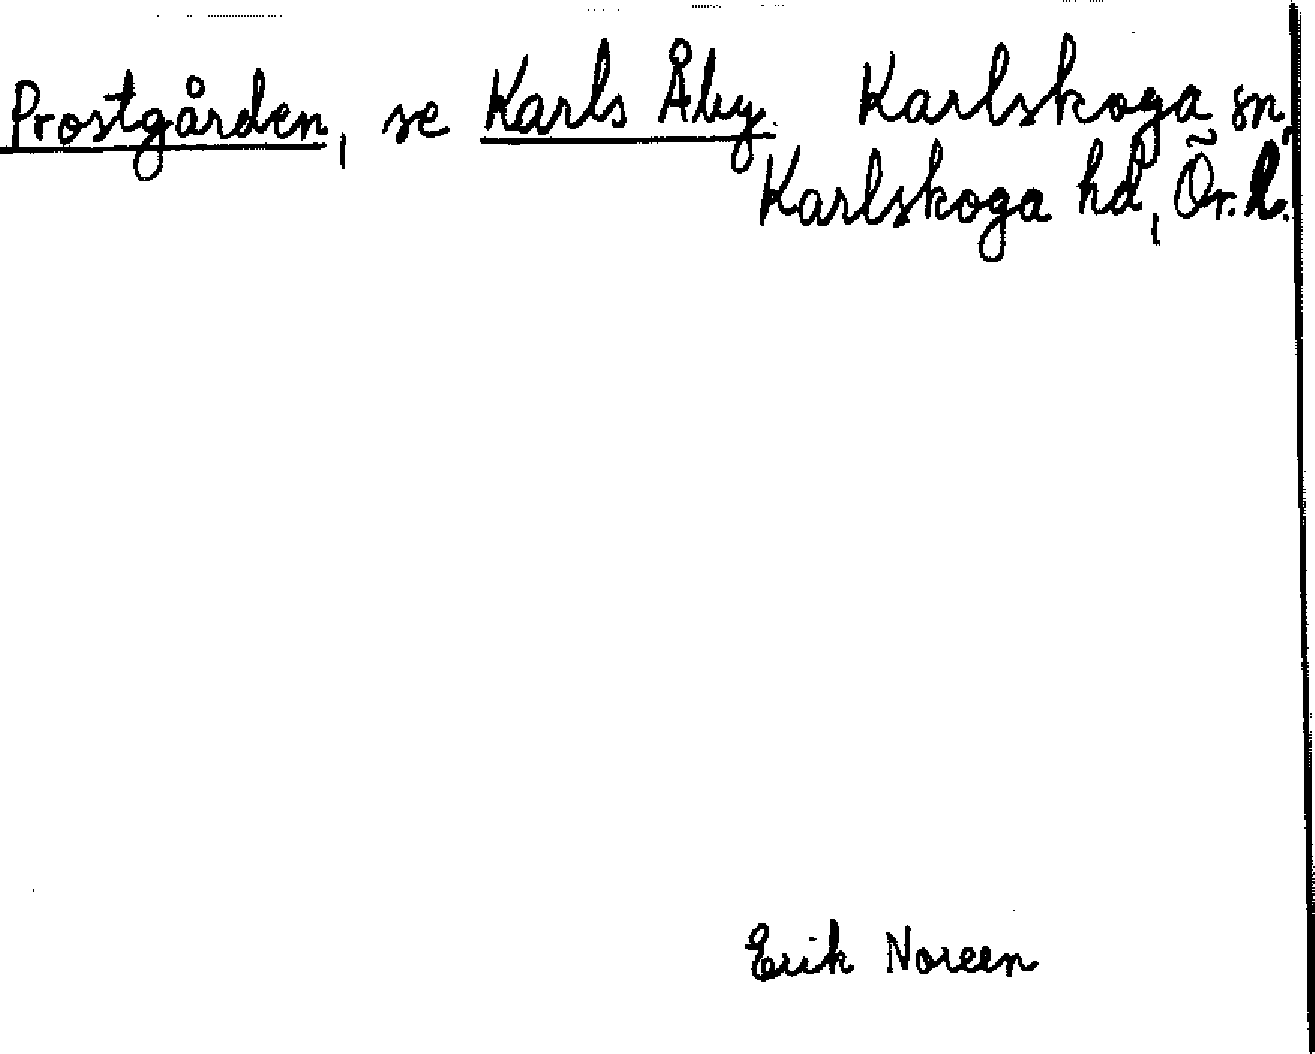 Prostgården, se Karls Åby. Karlskoga sn,
Karlskoga hd, Ör. l.
Erik Noreen